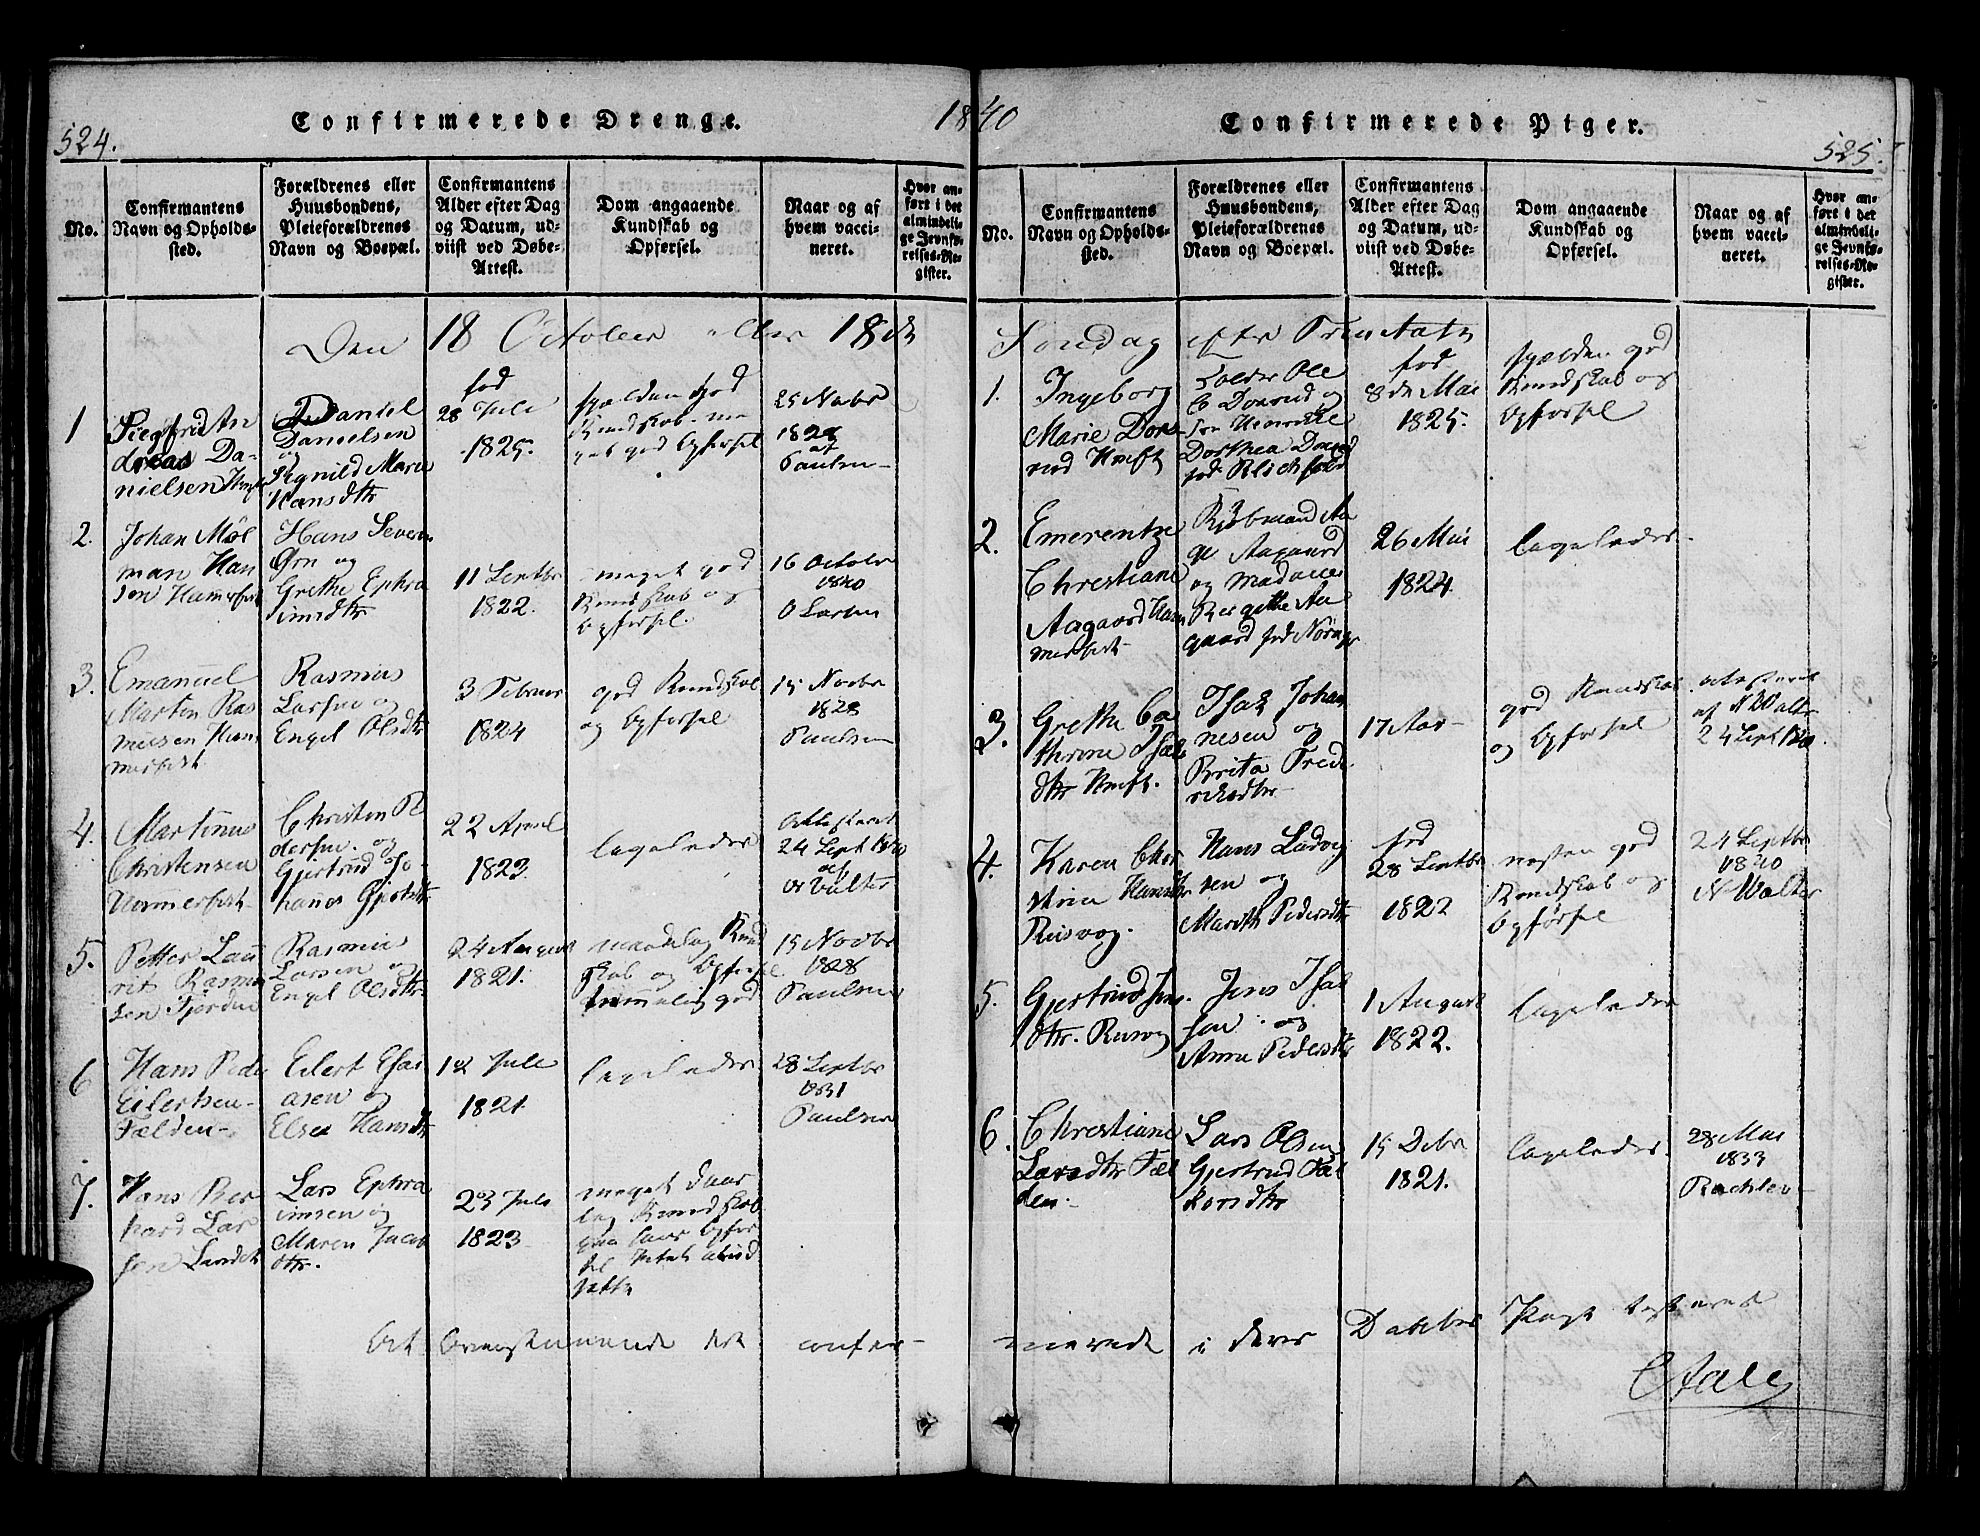 524.
Confirmerede Drenge.
1840
No.
Confirmantens
Navn og Opholds-
sted.
Forældrenes eller
Huusbondens,
Pleieforældrenes
Navn og Boepæl.
Confirmantens
Alder efter Dag
og Datum, ud-
viist ved Døbe-
Attest.
Dom angaaende
Kundskab og
Opførsel.
Naar og af
hvem vacci-
neret.
Hvor an-
ført i det
almindeli-
ge Jevnfø-
relses-Re-
gister.
Den 18 October eller 18de
1
Siegfrid An
dreas Da-
nielsen
Daniel
Danielsen
og
Signild Marie
Hansdtr
fød
28 Juli
1825.
god
Kundskab
god Opførsel
25 Novbr
af
Paulsen
2.
Johan Møl
man Han
sen Hamerfest
Hans Severin
Ørn og
Grethe Ephra
imsdtr
11 Septbr
1822.
meget god
Kundskab og
Opførsel.
16 October
1840
O Larsen
3.
Emanuel
Martin Ras
musen Ham
merfest
Rasmus
Larsen og
Engel Olsdtr
3 Februar
1824
god Kundskab
og Opførsel
15 Novbr
1828
Paulsen
4.
Martinus
Christensen
Hammerfest
Christen P
dersen og
Gjertrud Jo
hannes
22 April
1823
ligeledes
Attesteret
24 Sept 1840
af
Walter
5.
Petter Lau
rits Rasmu
sen Fjorden
Rasmus
Larsen og
Engel Olsdtr.
24 August
1821.
maadelig Kund
skab og Opførsel
temmelig god
15 Novbr
1828
Paulsen
6
Hans Peder
Eilertsen
Fælden
Eilert Esai
asen og
Else Hansdtr
12 Juli
1821
ligeledes
28 Septbr
1831
Paulsen
7.
Hans Ber
hard Lar
sen
Lars Ephra
imsen og
Maren Jacob
dtr.
23 Juli
1823
meget daar
lig Kundskab
Opfør
sel
At Ovenstaaende ere confir-
Confirmerede Piger.
525.
No.
Confirmantens
Navn og Opholds-
sted.
Forældrenes eller
Huusbondens,
Pleieforældrenes
Navn og Boepæl.
Confirmantens
Alder efter Dag
og Datum, ud-
viist ved Døbe-
Attest.
Dom angaaende
Kundskab og
Opførsel.
Naar og af
hvem vacci-
neret.
Hvor an-
ført i det
almindeli-
ge Jevnfø-
relses-Re-
gister.
Søndag efter Trinitatis
1.
Ingeborg
Marie Dor-
rud Hmft
Ole
Dorrud og
Henrikke
Dorthea
født Blichfeldt
fød
8de Mai
1825.
god
Kundskab og
Opførsel
2.
Emerentze
Christiane
Aagaard Ham
merfest
Kjøbmand Aa
ge Aagaard
og Madame
Bergithe Aa
gaard født
26 Mai
1824
ligeledes
3.
Grethe Ca
thrine Isak
dtr Hmft.
Isak Johan
nesen og
Brita Fred
riksdtr
17 Aar
god Kundskab
og Opførsel
Attesteret
af N Walter
24 Sept 1840.
4.
Karen Chri
stine Hansdtr
Reisvog.
Hans Ludvig
sen og
Marith Pedersdtr
fød
28 Septbr
1822
næsten god
Kundskab og
Opførsel
24 Septbr
1840
N Walter
5.
Gjertrud Jens
dtr. Reisvog
Jens Isak
sen og
Anne Pedersdtr
1 August
1822.
ligeledes
6.
Christiane
Larsdtr Fæl
den
Lars Olsen
Gjertrud
15 Debr
1821.
ligeledes
28 Mai
1833
merede i deres Daabs Pagt